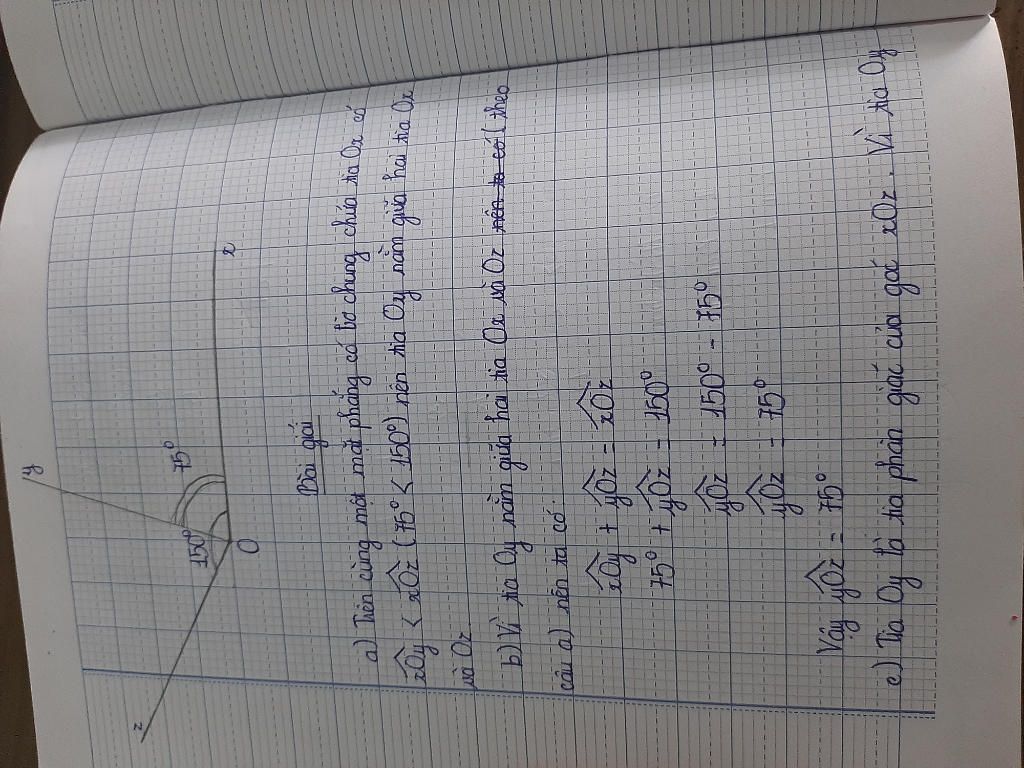 y
75°
150°
z
O
x
Bài giải
a) Trên cùng một mặt phẳng có bờ chung chứa tia Ox có
xOy < xOz (75° < 150°) nên tia Oy nằm giữa hai tia Ox
và Oz
b) Vì tia Oy nằm giữa hai tia Ox và Oz nên ta có ( theo
câu a) nên ta có:
xOy + yOz = xOz
75° + yOz = 150°
yOz = 150° - 75°
yOz = 75°
Vậy yOz = 75°
c) Tia Oy là tia phân giác của góc xOz. Vì tia Oy